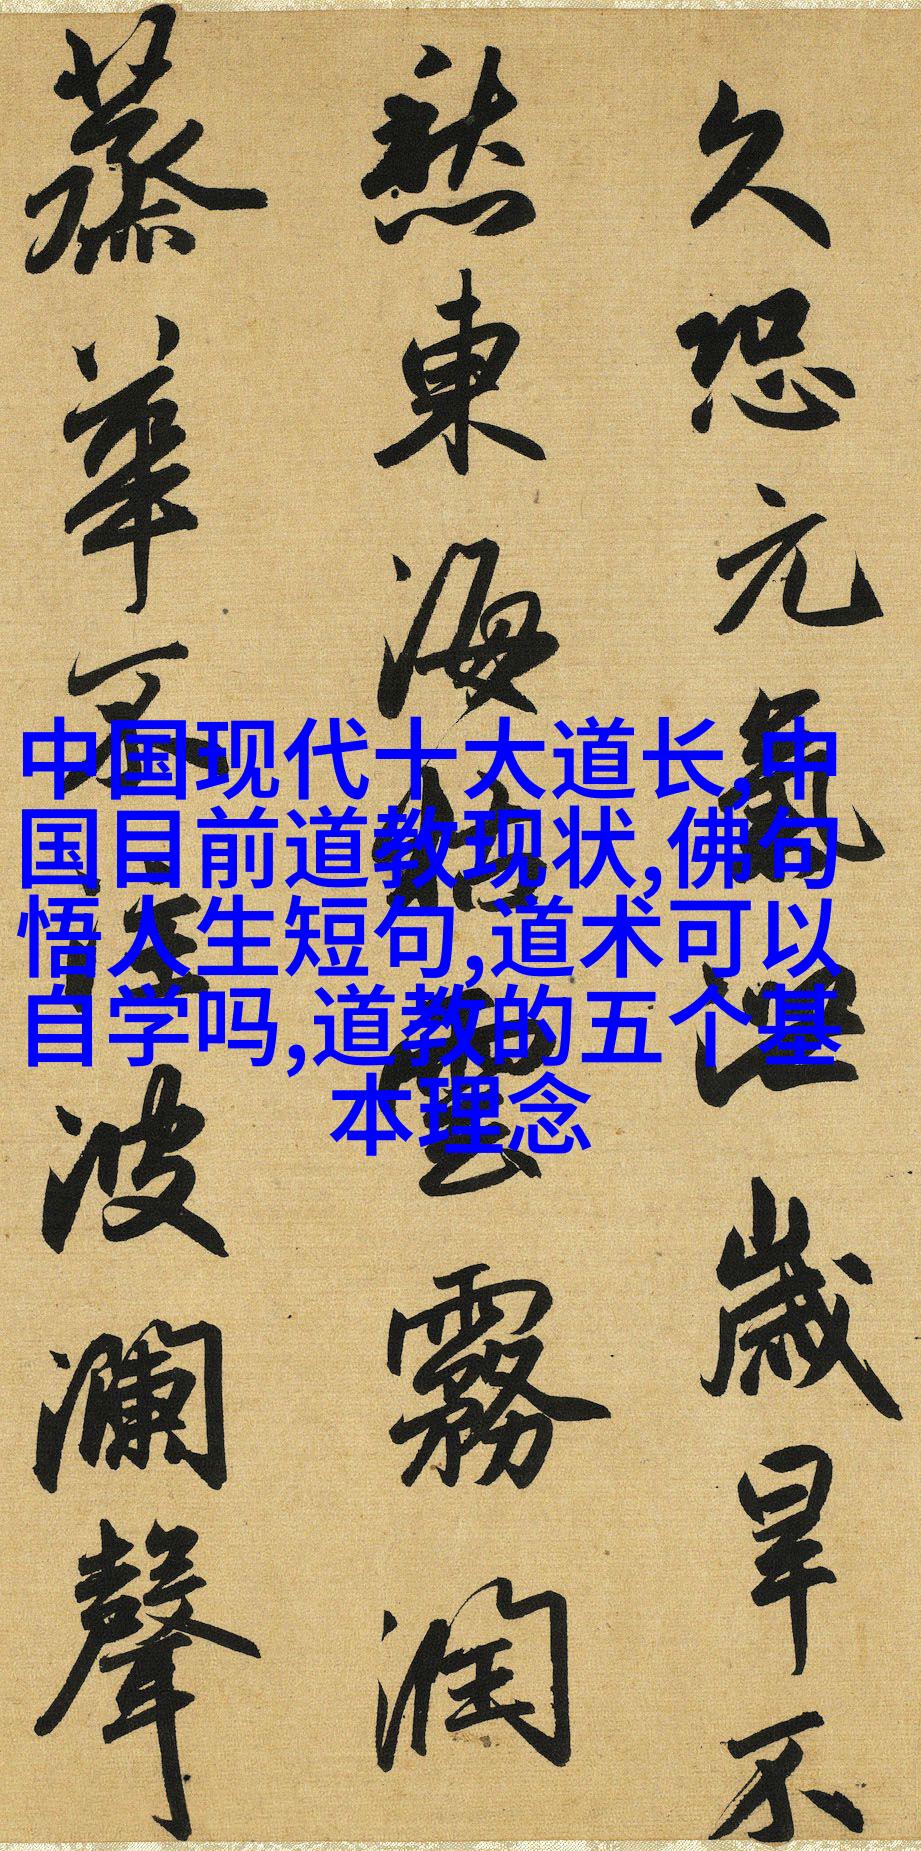 久恐元氣泄歲旱不
愁東海枯雲霧潤
蒸華不注波瀾聲
中国现代十大道长,中
国目前道教现状,佛句
悟人生短句,道术可以
自学吗,道教的五个基
本理念